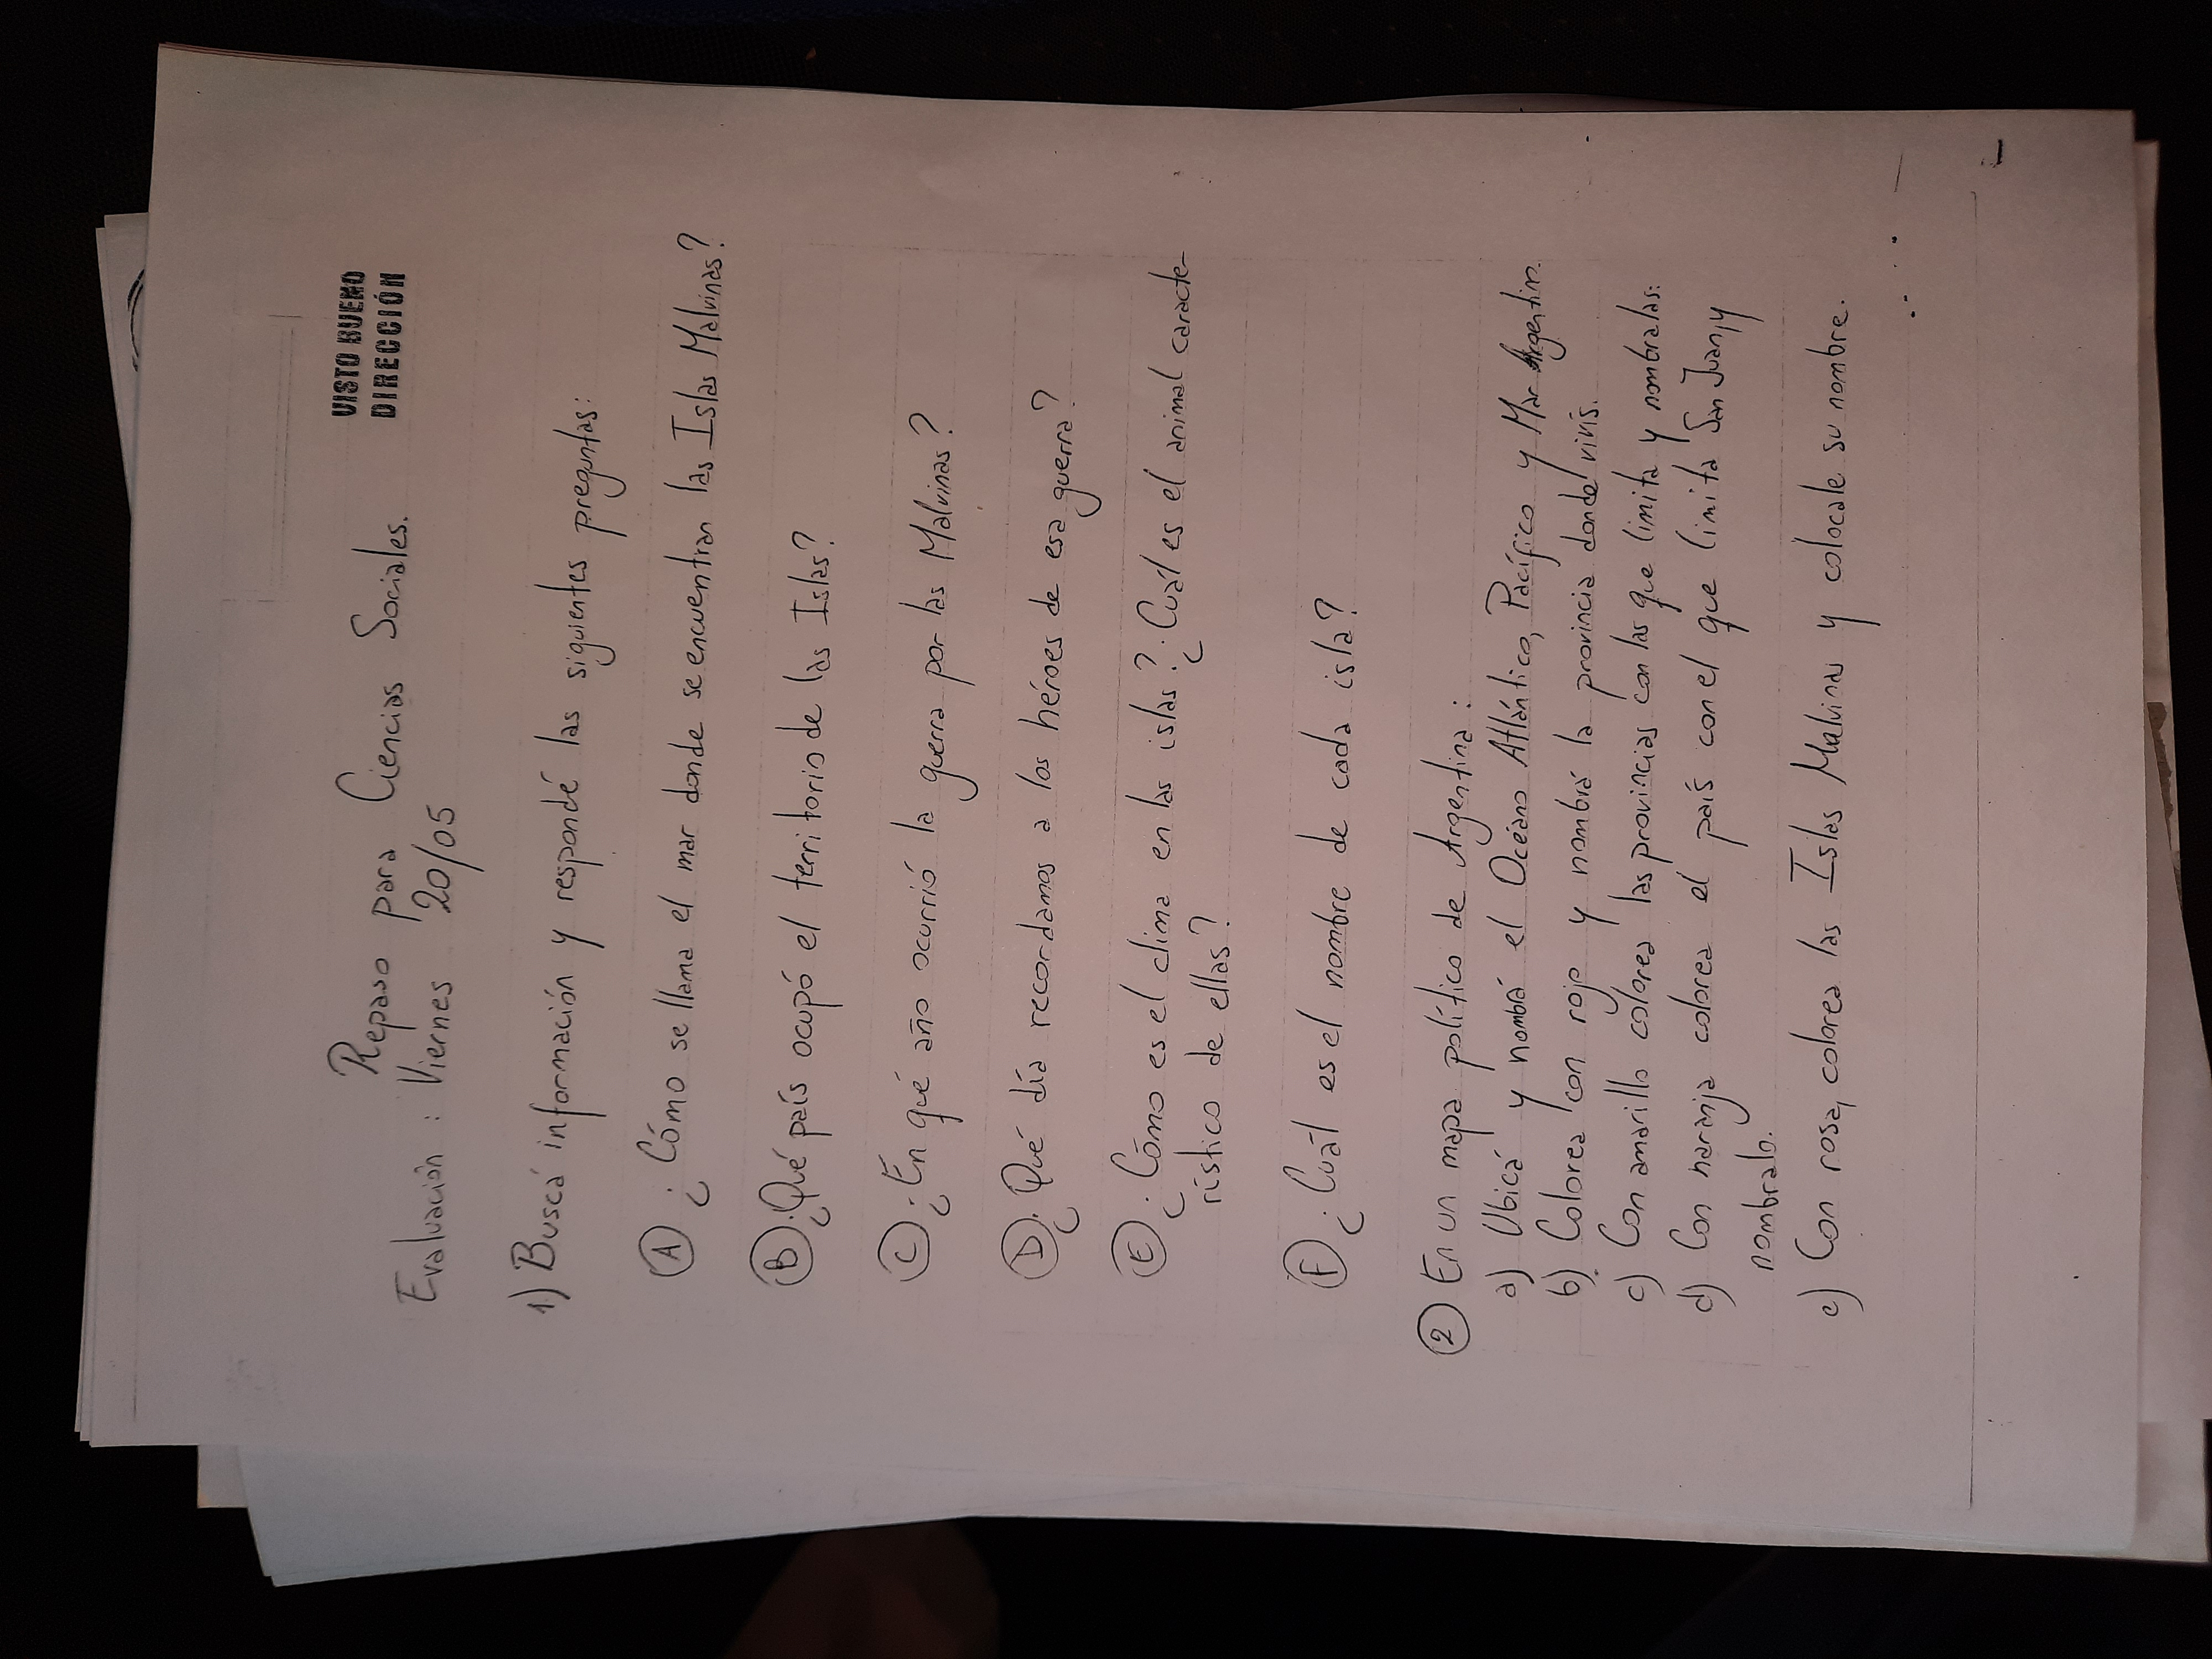 VISTO BUENO
DIRECCIÓN
Repaso para Ciencias Sociales.
Evaluación : Viernes 20/05
1) Buscá información y respondé las siguientes preguntas:
A ¿Cómo se llama el mar donde se encuentran las Islas Malvinas?
B ¿Qué país ocupó el territorio de las Islas?
C ¿En qué año ocurrió la guerra por las Malvinas?
D ¿Qué día recordamos a los héroes de esa guerra?
E ¿Cómo es el clima en las islas? ¿Cuál es el animal caracte-
rístico de ellas?
F ¿Cuál es el nombre de cada isla?
2 En un mapa político de Argentina:
a) Ubicá y nombrá el Océano Atlántico, Pacífico y Mar Argentin.
b) Colorea con rojo y nombrá la provincia donde vivís.
c) Con amarillo colorea las provincias con las que limita y nombralas.
d) Con naranja colorea el país con el que limita San Juan, y
nombralo.
e) Con rosa, colorea las Islas Malvinas y colocale su nombre.